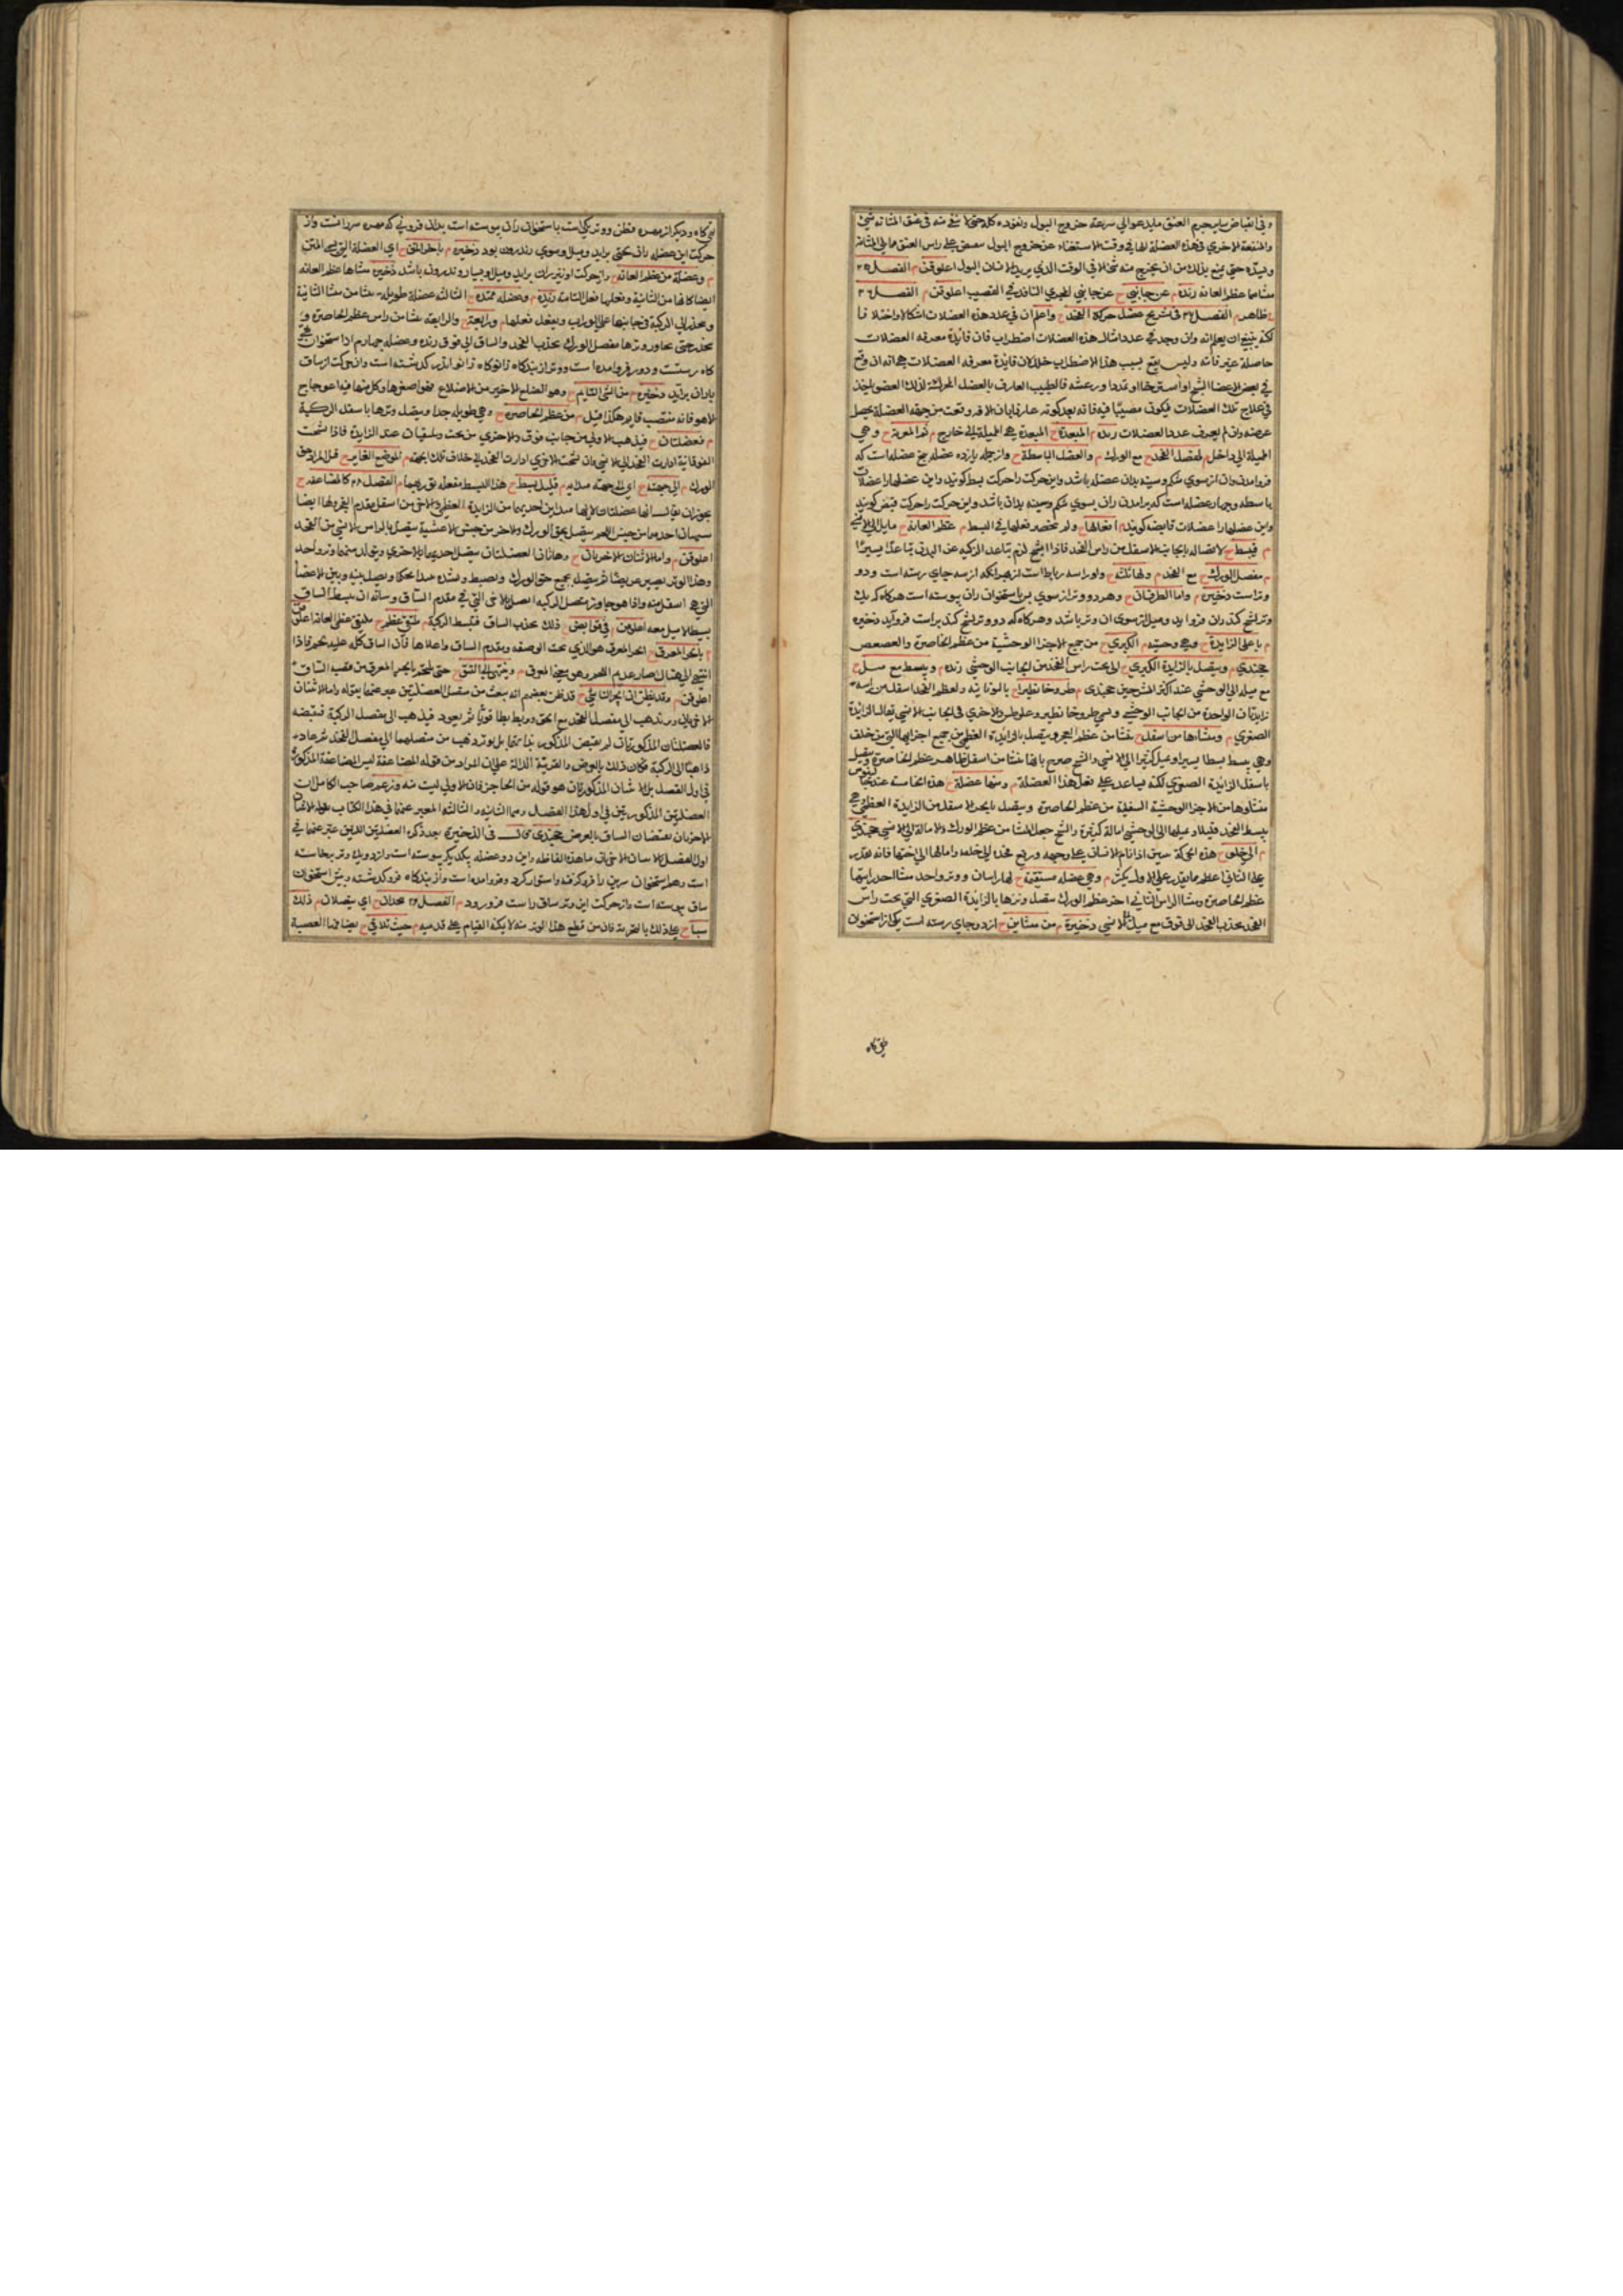 وفي انقباض ساير جرم العنق مايدعو الي سرعة خروج البول ونفوذه كله حتي لا يبقي منه في عنق المثانة شئ
والمنفعة الاخري في هذه العضلة انها في وقت الاستغناء عن خروج البول على راس العنق مما يلي المثانة
حتي يمنع بذلك من ان يخرج منه شئ الا في الوقت الذي يريد الانسان البول اعلوقن م الفصل ٢٥
منشاهما عظم العانه رنده م عن جانبي ح عن جانبي المجري النافذ في القضيب اعلوقن م الفصل ٢٦
ظاهر م الفصل ٢٦ في تشريح عضل حركة الفخذ ح واعلم ان في عدد هذه العضلات اشكالا واختلافا
لكنه ينبغي ان يعلم انه وان وجد في عدد امثال هذه العضلات اضطراب فان فائدة معرفة العضلات
حاصلة غير فائته وليس يقع بسبب هذا الاضطراب خلل لان فائدة معرفة العضلات هي انه ان وقع
في بعض الاعضا تشنج او استرخا او تمدد او رعشه فالطبيب العارف بالعضل المحركة لذلك العضو ياخذ
في علاج تلك العضلات فيكون مصيبا فيه فانه بعد كونه عارفا بان الافة وقعت من جهة العضلة يحصل
غرضه وان لم يعرف عدد العضلات رنده م المبعدة ح المبعدة هي المميلة الي خارج م ثم المقربة ح وهي
المميلة الي داخل م لمفصل الفخذ ح مع الورك م والعضل الباسطة ح واز جمله يازده عضله پنج عضله است كه
فرو امدن ران از سوي شكم وسينه بدان عضله باشد واين حركت را حركت بسط كويند واين عضلها را عضلات
باسطه وچهار عضله است كه برامدن ران بسوي شكم وسينه بدان باشد واين حركت را حركت قبض كويند
واين عضلها را عضلات قابضه كويند م افعالها ح ولم تنحصر فعلها في البسط م عظم العانة ح مايل الي الانسي
م فتبسط ح لاتصاله بالجانب الاسفل من راس الفخذ فاذا تشنج لزم تباعد الركبة عن البدن تباعدا يسيرا
م مفصل الورك ح مع الفخذ م ولهاتلك ح واورا سه رباط است از بهر انكه از سه جاي رسته است ودو
وتر است ذخيره م واما الطرفان ح وهر دو وتر از سوي پس باستخوان ران پيوسته است هركاه كه يك
وتر تشنج كند ران فرو ايد وميل از سوي ان وتر باشد وهركاه كه دو وتر تشنج كند راست فروايد ذخيره
م باعلي الزايدة ح وهي وحشيه م الكبري ح من جميع الاجزا الوحشية من عظم الخاصرة والعصعص
جخندي م ويتصل بالزايدة الكبري ح الي تحت راس الفخذ من الجانب الوحشي رنده م ويبسط مع ميل ح
مع ميله الي الوحشي عند اكثر المشرحين جخندي م طروخانطير ح باليونانية ولعظم الفخذ اسفل من راسه
زايدتان الواحدة من الجانب الوحشي وتسمي طروخانطير وعلوطن والاخري في الجانب الانسي يقال الزايدة
الصغري م ومنشاها من اسفل ح منشا من عظم العجز ويتصل بالزايدة العظمي من جميع اجزايها التي من خلف
وهي تبسط بسطا يسيرا وتميل كثيرا الي الانسي والشيخ صرح بانها منشا من اسفل ظاهر عظم الخاصرة ويتصل
باسفل الزايدة الصغري لكنه يساعد على فعل هذا العضلة م ومنها عضلة ح هذه الخامسة عند جالينوس
منشاوها من الاجزا الوحشية السفلية من عظم الخاصرة ويتصل بالجزء الاسفل من الزايدة العظمي وهي
تبسط الفخذ قليلا وتميلها الي الوحشي امالة كثيرة والشيخ جعل المنشا من عظم الورك والامالة الي الانسي جخندي
م الي خلف ح هذه الحركة تبين اذا نام الانسان علي وجهه ورفع فخذه الي خلفه وامالها الي اختها فانه يقدر
علي الثاني اعظم مما يقدر علي الاول بكثير م وهي عضلة مستقيمة ح لها راسان ووتر واحد منشا احد راسيها
عظم الخاصرة ومنشا الراس الثاني اخر عظم الورك يتصل وترها بالزايدة الصغري التي تحت راس
الفخذ يجذب الفخذ الي فوق مع ميل للانسي ذخيرة م من منشاين ح از دو جاي رسته است يكي از استخوان
تهي كاه
تهي كاه وديكر از مهره قطن ووتر يكي است باستخوان ران پيوسته است بدان فزوني كه مهره سر رانست واز
حركت اين عضله ران بحق برايد وميل او سوي اندرون بود ذخيره م باخر المتن ح اي العضلة التي تسمي المتن
م وعضلة من عظم العانة ح واز حركت او نيز ران برايد وميل او باندرون باشد ذخيره منشاها عظم العانه
ايضا كانها من الثانية وفعلها فعل الثامنة رنده م وعضلة ممتدة ح الثالثة عضلة طويلة منشا من منشا الثانية
وينحدر الي الركبة في جانبها علي الوراب ويفعل فعلها م ورابعة ح والرابعة منشا من راس عظم الخاصرة
ينحدر حتي يجاوز وترها مفصل الورك يجذب الفخذ والساق الي فوق رنده وعضله چهارم از استخوان تهي
كاه رستست ودور فرو امده است ووتر از بندكاه زانو كاه زانو اندر كذشته است واز حركت او ساق
با ران برايد ذخيره م من الشي القايم ح وهو الضلع الاخير من الاضلاع فهو اصغرها وكل منها فيه اعوجاج
الا هو فانه منتصب قايم هكذا قيل م من عظم الخاصرة ح وهي طويلة جدا ويتصل وترها باسفل الركبة
م فعضلتان ح فيذهب الاولي من جانب فوق والاخري من تحت ويلتقيان عند الزايدة فاذا تشنجت
الفوقانية ادارت الفخذ الي الانسي وان تشنجت الاخري ادارت الفخذ الي خلاف تلك الجهة م الموضع الغاير ح قيل المراد حق
الورك م الي جهته ح اي الي جهة مبدايه م قليل بسط ح هذا البسط تفعله بتوريبها م الفصل ٢٧ كالمضاعفة ح
يجوز ان يقال انها عضلتان لانها مبداين احديهما من الزايدة العظمي والاخري من اسفل مقدم الفخذ ولها ايضا
سيان احدهما من جنس اللحم يتصل بحق الورك والاخر من جنس الاغشية يتصل بالراس الانسي من الفخذ
اعلوقن م واما الاثنان الاخريان ح وهاتان العضلتان يتصل احديهما بالاخري ويتولد منهما وتر واحد
وهذا الوتر يصير عريضا ثم يتصل بجميع حق الورك وتضبط وتشده شدا محكما ويصل بينه وبين الاعضا
التي هي اسفل منه واذا هو جاوز مفصل الركبة اتصل بالاجزا التي في مقدم الساق وشانه ان يبسط الساق
بسطا لا ميل معه اعلوقن م في قوابض ح ذلك يجذب الساق فتبسط الركبة م ملتقي عظم ح ملتقي عظمي العانة اعلوقن
م بانجر المعرق ح انجر المعرق هو الذي تحت الوصفه ومقدم الساق واعلاها فان الساق كله عليه لحم فاذا
انتهي الي هناك صار عديم اللحم وهي سمي المعرق م وينتهي الي الشق ح حتي يلتحم بانجر المعرق من قصبة الساق
اعلوقن م وقد يظن ان انجر الناشي ح قد ظن بعضهم انه ينبعث من متصل العضلتين عبر عنهما بقوله واما الاثنان
الاخريان وتر يذهب الي مفصل الفخذ مع الحق ويربط ربطا قويا ثم يعود فيذهب الي مفصل الركبة فتقبضه
فالعضلتان المذكورتان لم تقبض المذكور بذاتها بل بوتر ذهب من متصلهما الي مفصل الفخذ ثم عاد
ذاهبا الي الركبة فكان ذلك بالعرض والقرينة الدالة علي ان المراد من قوله المضاعفة ليس المضاعفة المذكورة
في اول الفصل بل الاثنان المذكورتان هو قوله من الحاجز فان الاولي ليست منه وزعم صاحب الكامل ان
العضلتين المذكورتين في اول هذا الفصل وهما الثانيه والثالثه المعبر عنهما في هذا الكتاب بقوله الاثنان
الاخريان تقبضان الساق بالعرض جخندي قال في الذخيرة بعد ذكر العضلتين اللتين عبر عنهما في
اول الفصل بالاثنان الاخريان ما هذه الفاظه واين دو عضله بيكديكر پيوسته است واز دو يك وتر بخاسته
است وهمه استخوان سرين را فرو كرفته واستوار كرد وفرو امده است واز بندكاه فرو كذشته وپيش استخوان
ساق پيوسته است واز حركت اين وتر ساق راست فرو رود م الفصل ٢٨ يجدان ح اي يتصلان م ذلك
سببا ح علي ذلك بالتجربة فان من قطع هذا الوتر منه لا يمكنه القيام علي قدميه م حيث تلاقي ح بعضهما العصبة